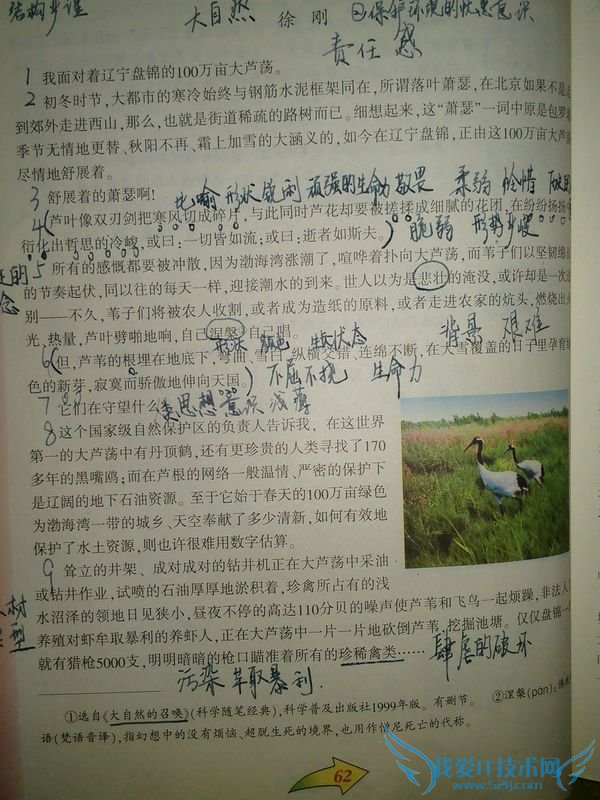 结构步骤 大自然 徐 刚 ②保护环境的忧患意识
责任感
1 我面对着辽宁盘锦的100万亩大芦荡。
2 初冬时节,大都市的寒冷始终与钢筋水泥框架同在,所谓落叶萧瑟,在北京如果不是走
到郊外走进西山,那么,也就是街道稀疏的路树而已。细想起来,这“萧瑟”一词中原是包罗着
季节无情地更替、秋阳不再、霜上加雪的大涵义的,如今在辽宁盘锦,正由这100万亩大芦荡
尽情地舒展着。
3 舒展着的萧瑟啊!
比喻 形状锐利 顽强的生命力 敬畏 柔弱 怜惜
4(芦叶像双刃剑把寒风切成碎片,与此同时芦花却要被搓揉成细腻的花团,在纷纷扬扬中
衍化出哲思的冷峻,或曰:一切皆如流;或曰:逝者如斯夫。) 脆弱
5 所有的感慨都要被冲散,因为渤海湾涨潮了,喧哗着扑向大芦荡,而苇子们以坚韧绵长
的节奏起伏,同以往的每天一样,迎接潮水的到来。世人以为是悲壮的淹没,或许却是一次告
别——不久,苇子们将被农人收割,或者成为造纸的原料,或者走进农家的炕头,燃烧出火
光,热量,芦叶劈啪地响,自己涅槃自己唱。
背景 艰难
形状 颜色 生长状态
6(但,芦苇的根埋在地底下,弯曲,雪白,纵横交错,连绵不断,在大雪覆盖的日子里孕育绿
色的新芽,寂寞而骄傲地伸向天国。) 不屈不挠 生命力
7 它们在守望什么
思想意识浅薄
8 这个国家级自然保护区的负责人告诉我,在这世界
第一的大芦荡中有丹顶鹤,还有更珍贵的人类寻找了170
多年的黑嘴鸥;而在芦根的网络一般温情、严密的保护下
是辽阔的地下石油资源。至于它始于春天的100万亩绿色
为渤海湾一带的城乡、天空奉献了多少清新,如何有效地
保护了水土资源,则也许很难用数字估算。
9 耸立的井架、成对成对的钻井机正在大芦荡中采油
或钻井作业,试喷的石油厚厚地淤积着,珍禽所占有的浅
水沼泽的领地日见狭小,昼夜不停的高达110分贝的噪声使芦苇和飞鸟一起烦躁,非法人工
养殖对虾牟取暴利的养虾人,正在大芦荡中一片一片地砍倒芦苇,挖掘池塘。仅仅盘锦一地
就有猎枪5000支,明明暗暗的枪口瞄准着所有的珍稀禽类…… 肆虐的破坏
污染 牟取暴利
①选自《大自然的召唤》(科学随笔经典),科学普及出版社1999年版。有删节。 ②涅槃(pán):佛教
语(梵语音译),指幻想中的没有烦恼、超脱生死的境界,也用作僧尼死亡的代称。
62
我爱IT技术网
www.52ij.com